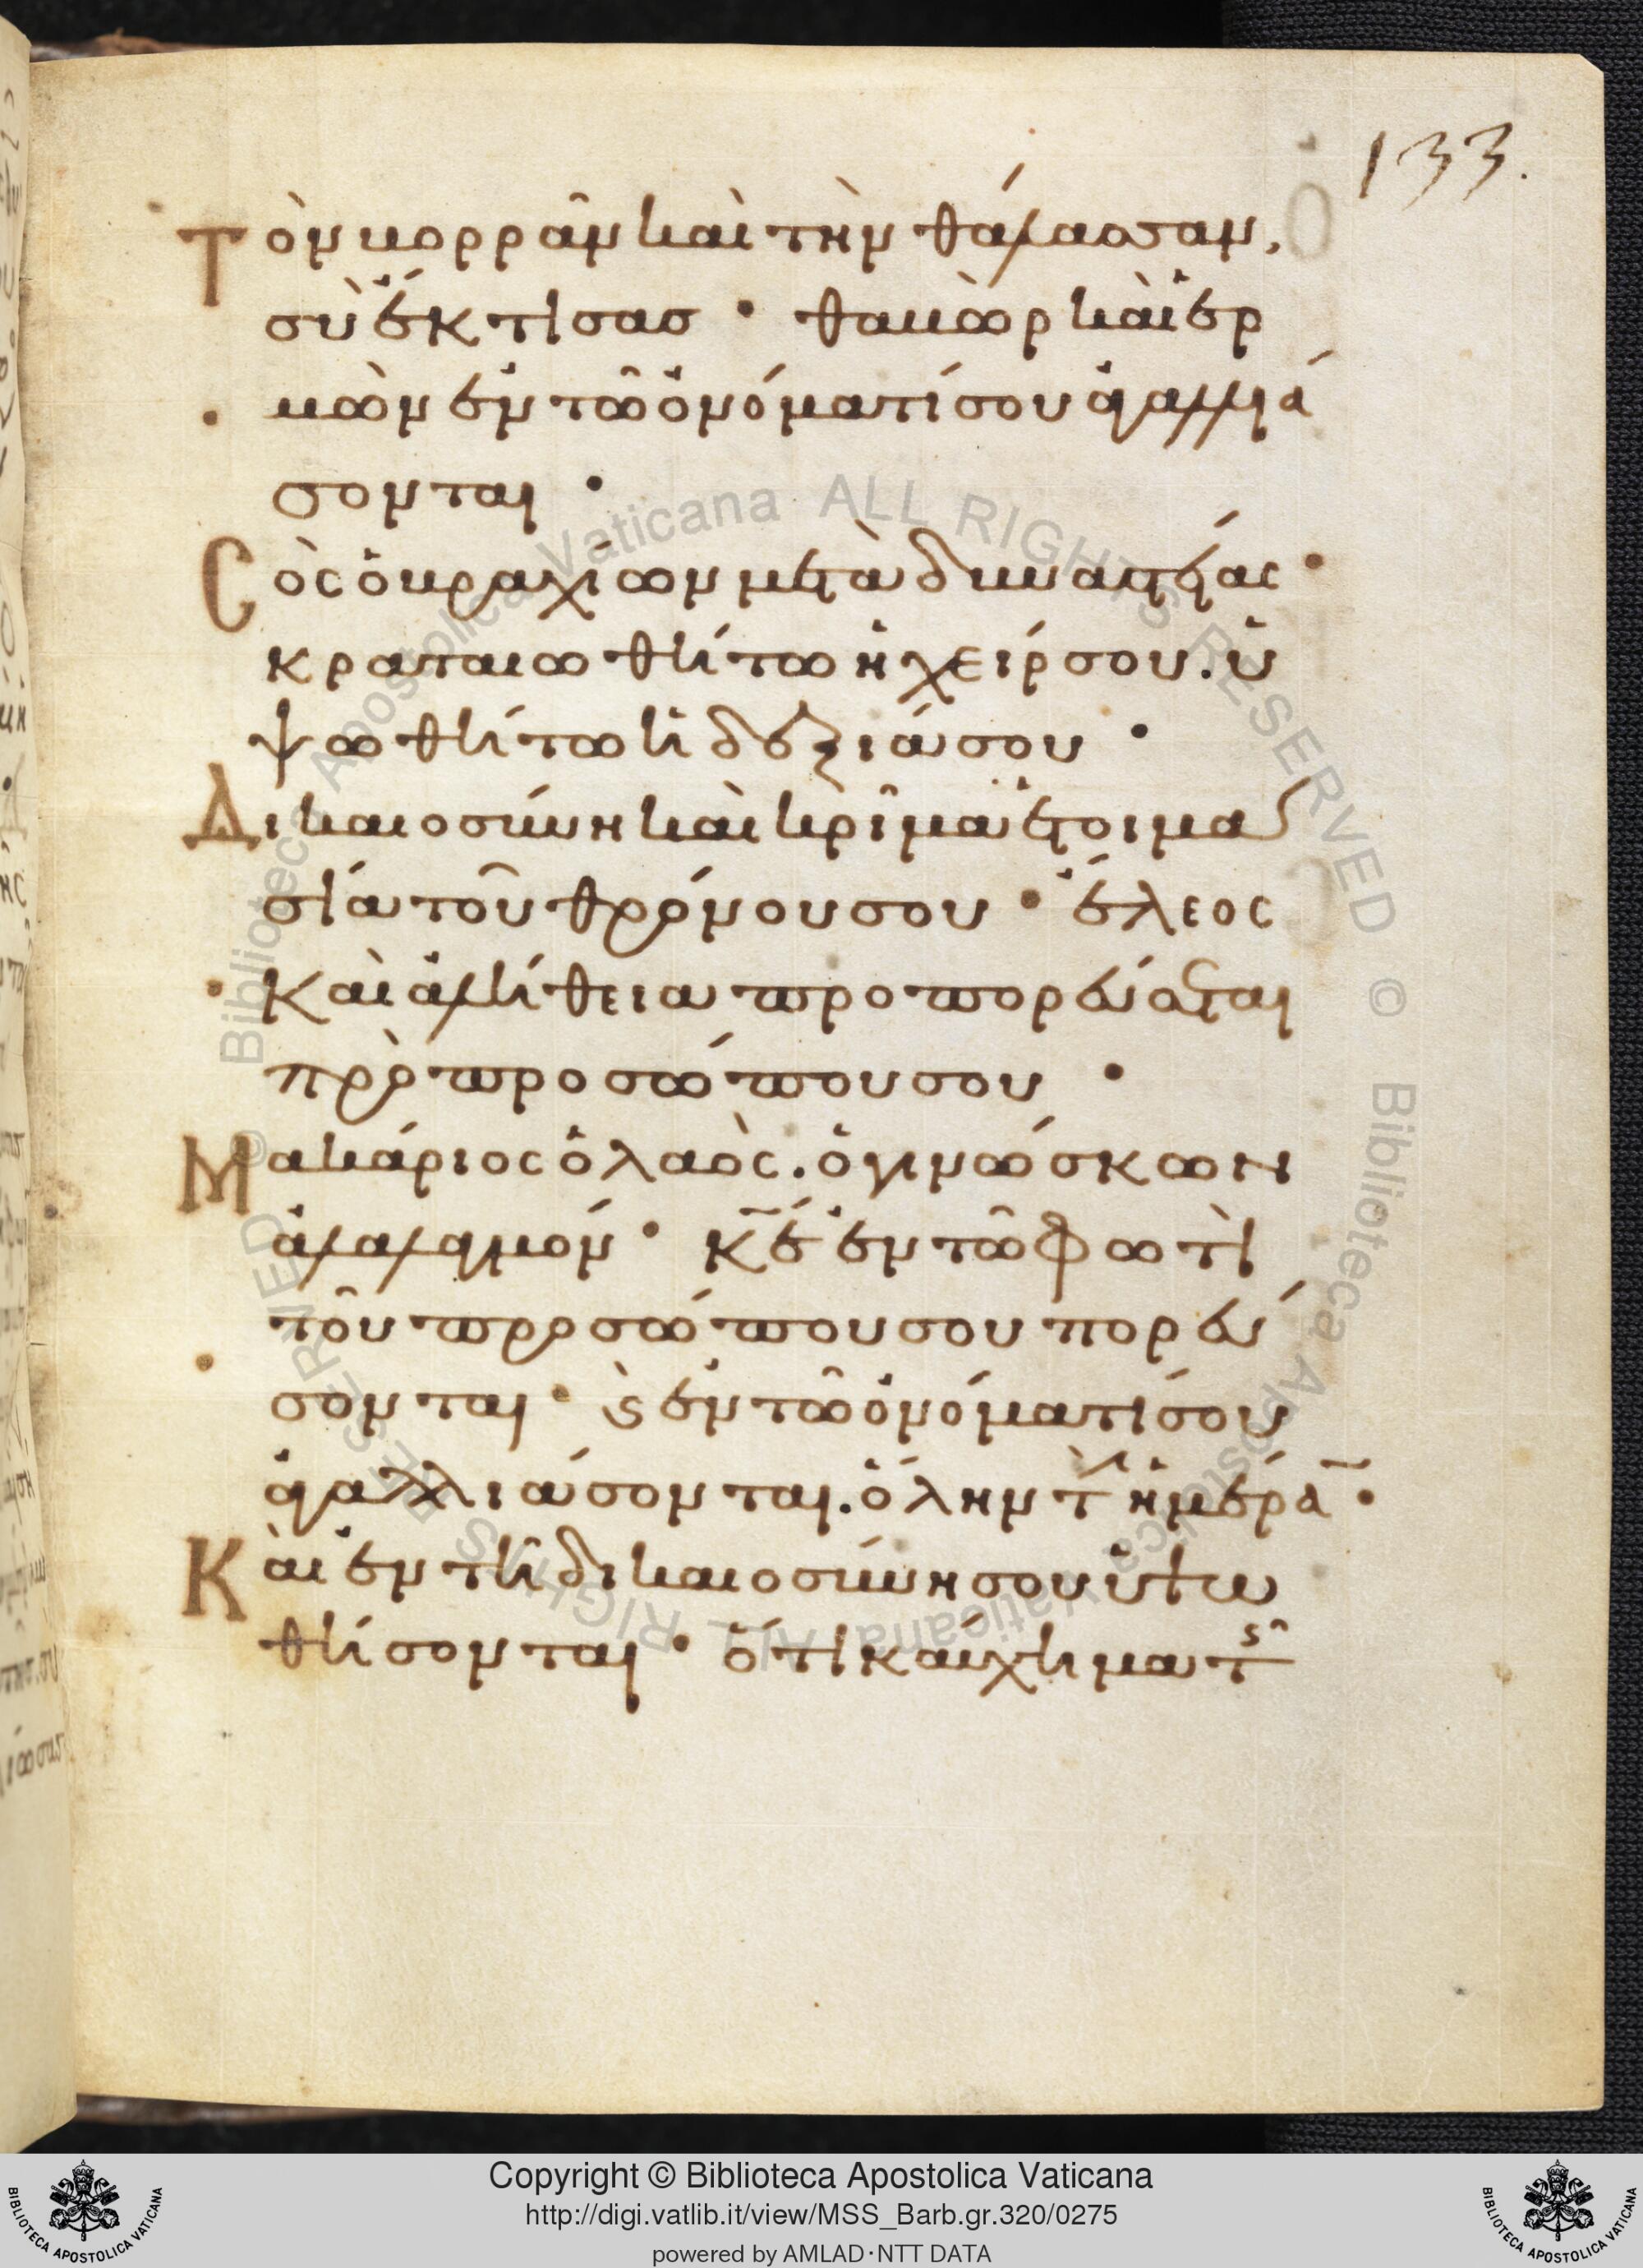 133.
Τὸν βορρᾶν καὶ τὴν θάλασσαν,
σὺ ἔκτισας · θαβὼρ καὶ ἑρ
μὼν ἐν τῶ ὀνόματί σου ἀγαλλιά
σονται ·
Σὸς ὁ βραχίων μετὰ δυναστείας ·
κραταιωθήτω ἡ χείρ σου. ὑ
ψωθήτω ἡ δεξιά σου ·
Δικαιοσύνη καὶ κρῖμα ἑτοιμα
σία τοῦ θρόνου σου · ἔλεος
καὶ ἀλήθεια προπορεύσεται
πρὸ προσώπου σου ·
Μακάριος ὁ λαὸς. ὁ γινώσκων
ἀλαλαγμόν · κ̅ε̅ ἐν τῶ φωτὶ
τοῦ προσώπου σου πορεύ
σονται · ϛ̀ ἐν τῶ ὀνόματί σου
ἀγαλλιάσονται. ὅλην τ̀ ἡμέρα̅ ·
Καὶ ἐν τῆ δικαιοσύνη σου ὑψω
θήσονται · ὅτι καύχημα τ
Copyright © Biblioteca Apostolica Vaticana
http://digi.vatlib.it/view/MSS_Barb.gr.320/0275
powered by AMLAD·NTT DATA
BIBLIOTECA APOSTOLICA VATICANA
BIBLIOTECA APOSTOLICA VATICANA
© Biblioteca Apostolica Vaticana ALL RIGHTS RESERVED © Biblioteca Apostolica Vaticana ALL RIGHTS RESERVED